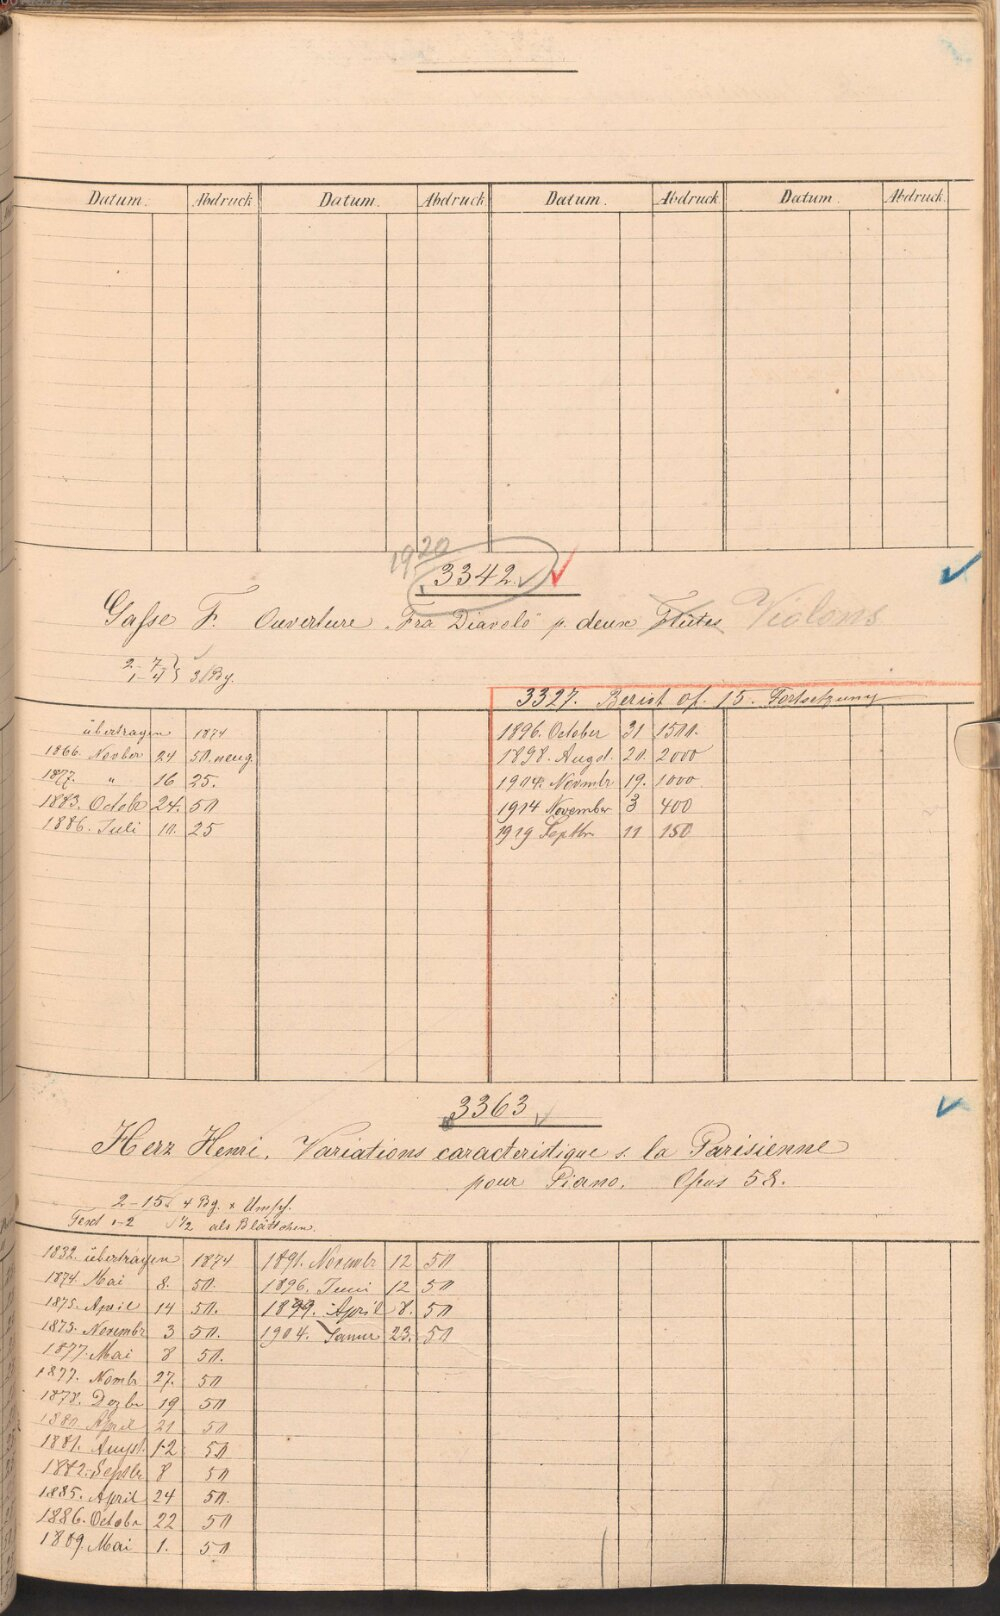 Datum. Abdruck Datum. Abdruck Datum. Abdruck Datum. Abdruck.
1920
3342
Gasse F. Ouverture Fra Diavolo p. deux Flûtes Violons
2-7
1-4 3 Bg.
3327. Beriot op. 15. Fortsetzung
übertragen 1874
1866. Novber 24 50. neug.
1877. " 16 25.
1883. Octobr 24. 50
1886. Juli 10. 25
1896. October 31 1500.
1898. Augst. 20. 2000
1904. Novmbr 19. 1000
1914 November 3 400
1919 Septbr. 11 150
3363
Herz Henri. Variations caracteristique s. la Parisienne
pour Piano. Opus 58.
2-15 4 Bg. + Umschl.
Text 1-2 1/2 als Blättchen.
1832. übertragen 1874
1874 Mai 8. 50.
1875. April 14 50.
1875. Novembr 3 50.
1877. Mai 8 50.
1877. Nombr 27. 50
1878. Dezbr 19 50
1880 April 21 50
1881. Augst. 12 50
1882. Septbr 8 50
1885. April 24 50.
1886. Octobr 22 50
1889. Mai 1. 50
1891. Novembr 12 50
1896. Juni 12 50
1899. April 8. 50
1904. Janur 23. 50